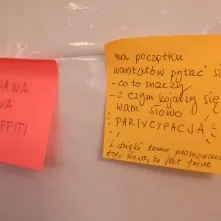 NANA
WA
FFITI
na początku
warsztatów pytać się
- co to znaczy
- z czym kojarzy się
wam słowo
PARTYCYPACJA
i dzięki temu promowanie
tego słowa, że jest fajne